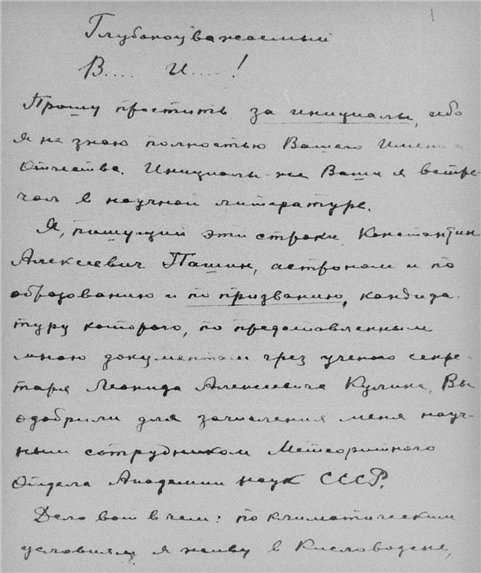 1
Глубокоуважаемый
В.... И....!
Прошу простить за инициалы, ибо
я не знаю полностью Вашего Имени и
Отчества. Инициалы же Ваши я встре-
чал в научной литературе.
Я, пишущий эти строки, Константин
Алексеевич Пашин, астроном и по
образованию и по призванию, кандида-
туру которого, по предоставленным
мною документам чрез ученого секре-
таря Леонида Алексеевича Кулика, Вы
одобрили для зачисления меня науч-
ным сотрудником Метеоритного
Отдела Академии наук СССР.
Дело вот в чем: по климатическим
условиям я живу в Кисловодске,